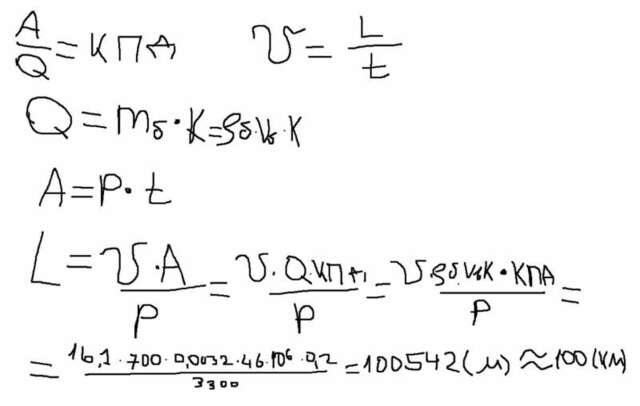 A/Q = КПД υ = L/t
Q = mб · K = ρб · Vб · K
A = P · t
L = υ · A / P = υ · Q · КПД / P = υ · ρб · Vб · K · КПД / P =
= 16,1 · 700 · 0,0032 · 46 · 10⁶ · 0,2 / 3300 = 100542 (м) ≈ 100 (км)